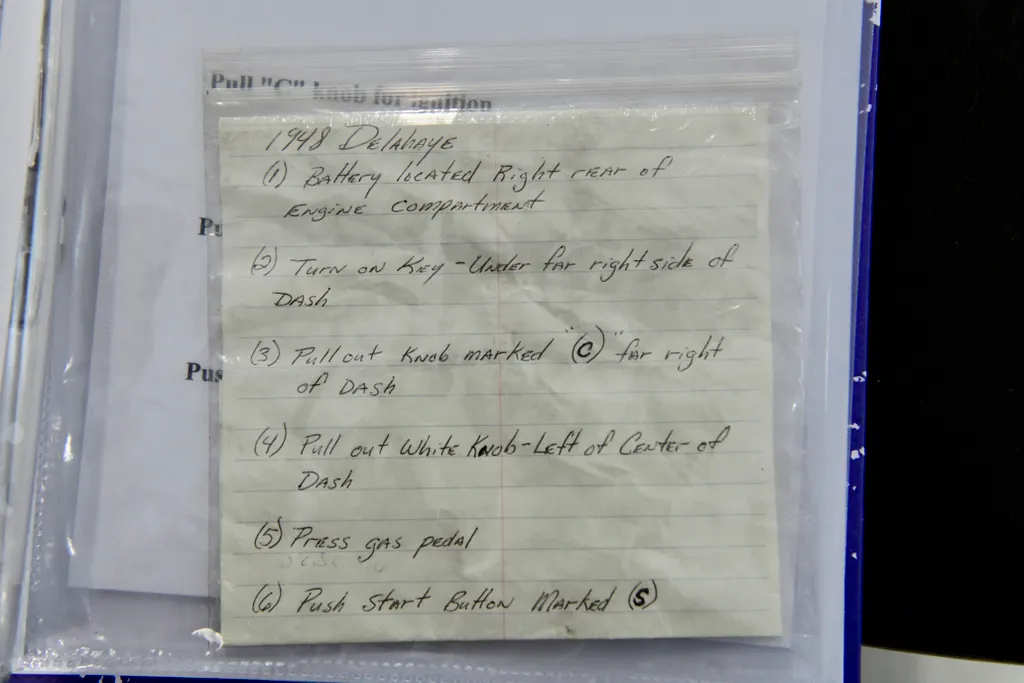 Pull "C" knob for ignition
1948 Delahaye
(1) Battery located Right rear of
Engine compartment
(2) Turn on Key - Under far right side of
Dash
(3) Pull out Knob marked "(C)" far right
of Dash
(4) Pull out White Knob - Left of Center of
Dash
(5) Press gas pedal
(6) Push Start Button Marked (S)